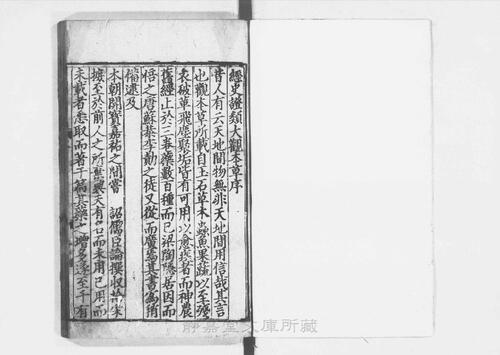 經史證類大觀本草序
昔人有云天地間物無非天地間用信哉其言
也觀本草所載自玉石草木蟲魚果蔬以至殘
衣破革飛塵聚垢皆有可用以愈疾者而神農
舊經止於三卷藥數百種而已梁陶隱居因而
倍之唐蘇恭李勣之徒又從而廣焉其書爲稍
備逮及
本朝開寶嘉祐之間嘗 詔儒臣論撰收拾采
摭至於前人之所棄與夫有名而未用已用而
未載者悉取而著于篇其藥之增多遂至千有
靜嘉堂文庫所藏